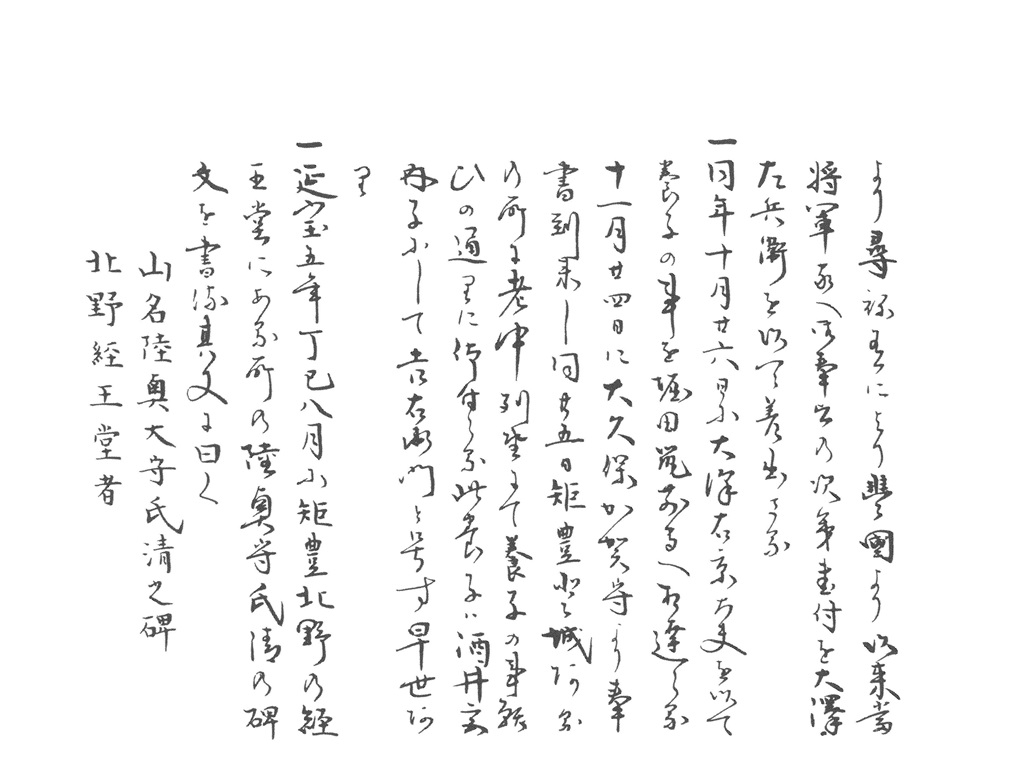 より尋ねるによりて豊國より以来當
将軍家へ御奉公の次第書付を大澤
左兵衛を以て差出さる
一同年十月廿六日に大澤右京大夫を以て
養子の事を堀田筑前守へ相達せらる
十一月廿四日に大久保加賀守より奉
書到来し同廿五日矩豊登城ある
の所に老中列坐にて養子の事願
ひの通りに仰付らる此養子ハ酒井
子にして吉右衛門と号す早世な
り
一延宝五年丁巳八月に矩豊北野の経
王堂にある所の陸奥守氏清の碑
文を書添其文に曰く
山名陸奥大守氏清之碑
北野経王堂者